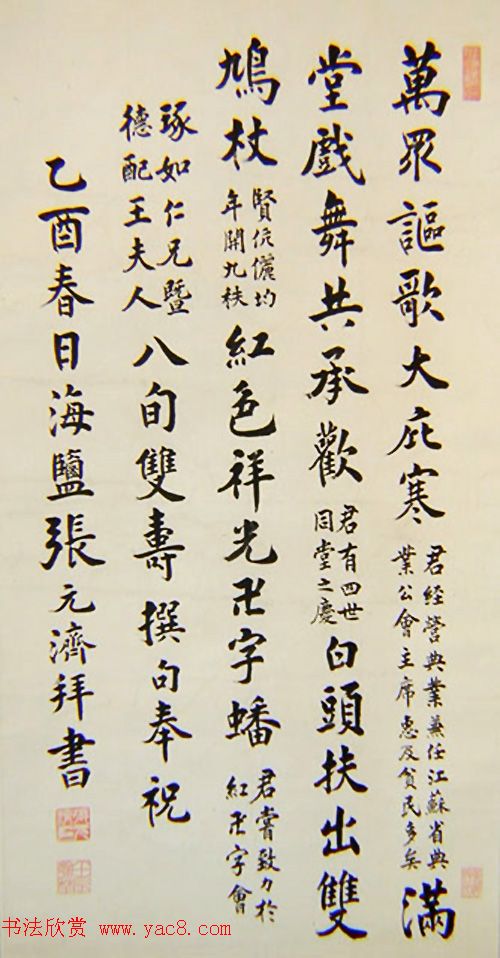 萬眾謳歌大庇寒君經營典業兼任江蘇省典業公會主席惠及貧民多矣滿
堂戲舞共承歡君有四世同堂之慶白頭扶出雙
鳩杖賢伉儷均年開九秩紅色祥光卍字蟠君嘗致力於紅卍字會
琢如仁兄暨德配王夫人八旬雙壽撰句奉祝
乙酉春日海鹽張元濟拜書
书法欣赏 www.yac8.com